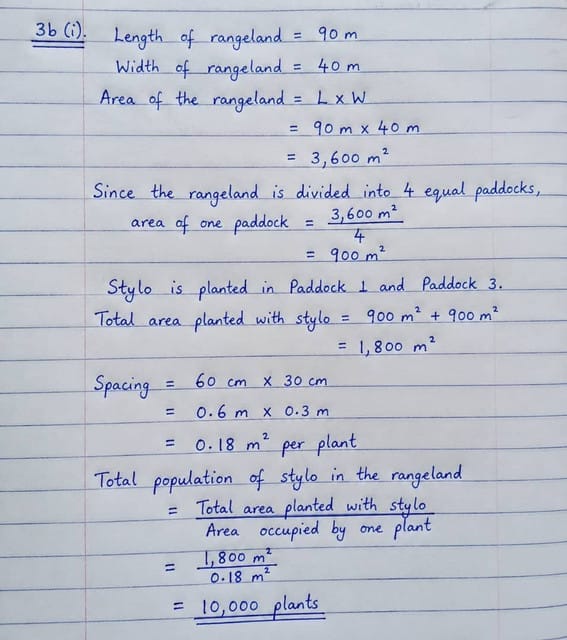 3b (i). Length of rangeland = 90 m
Width of rangeland = 40 m
Area of the rangeland = L x W
= 90 m x 40 m
= 3,600 m²
Since the rangeland is divided into 4 equal paddocks,
area of one paddock = 3,600 m²
4
= 900 m²
Stylo is planted in Paddock 1 and Paddock 3.
Total area planted with stylo = 900 m² + 900 m²
= 1,800 m²
Spacing = 60 cm x 30 cm
= 0.6 m x 0.3 m
= 0.18 m² per plant
Total population of stylo in the rangeland
= Total area planted with stylo
Area occupied by one plant
= 1,800 m²
0.18 m²
= 10,000 plants